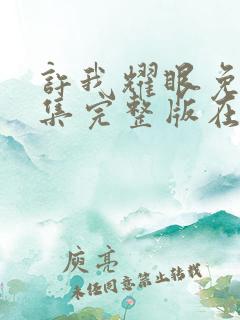 許我耀眼免
集完整版在
庾亮
未经同意禁止转载